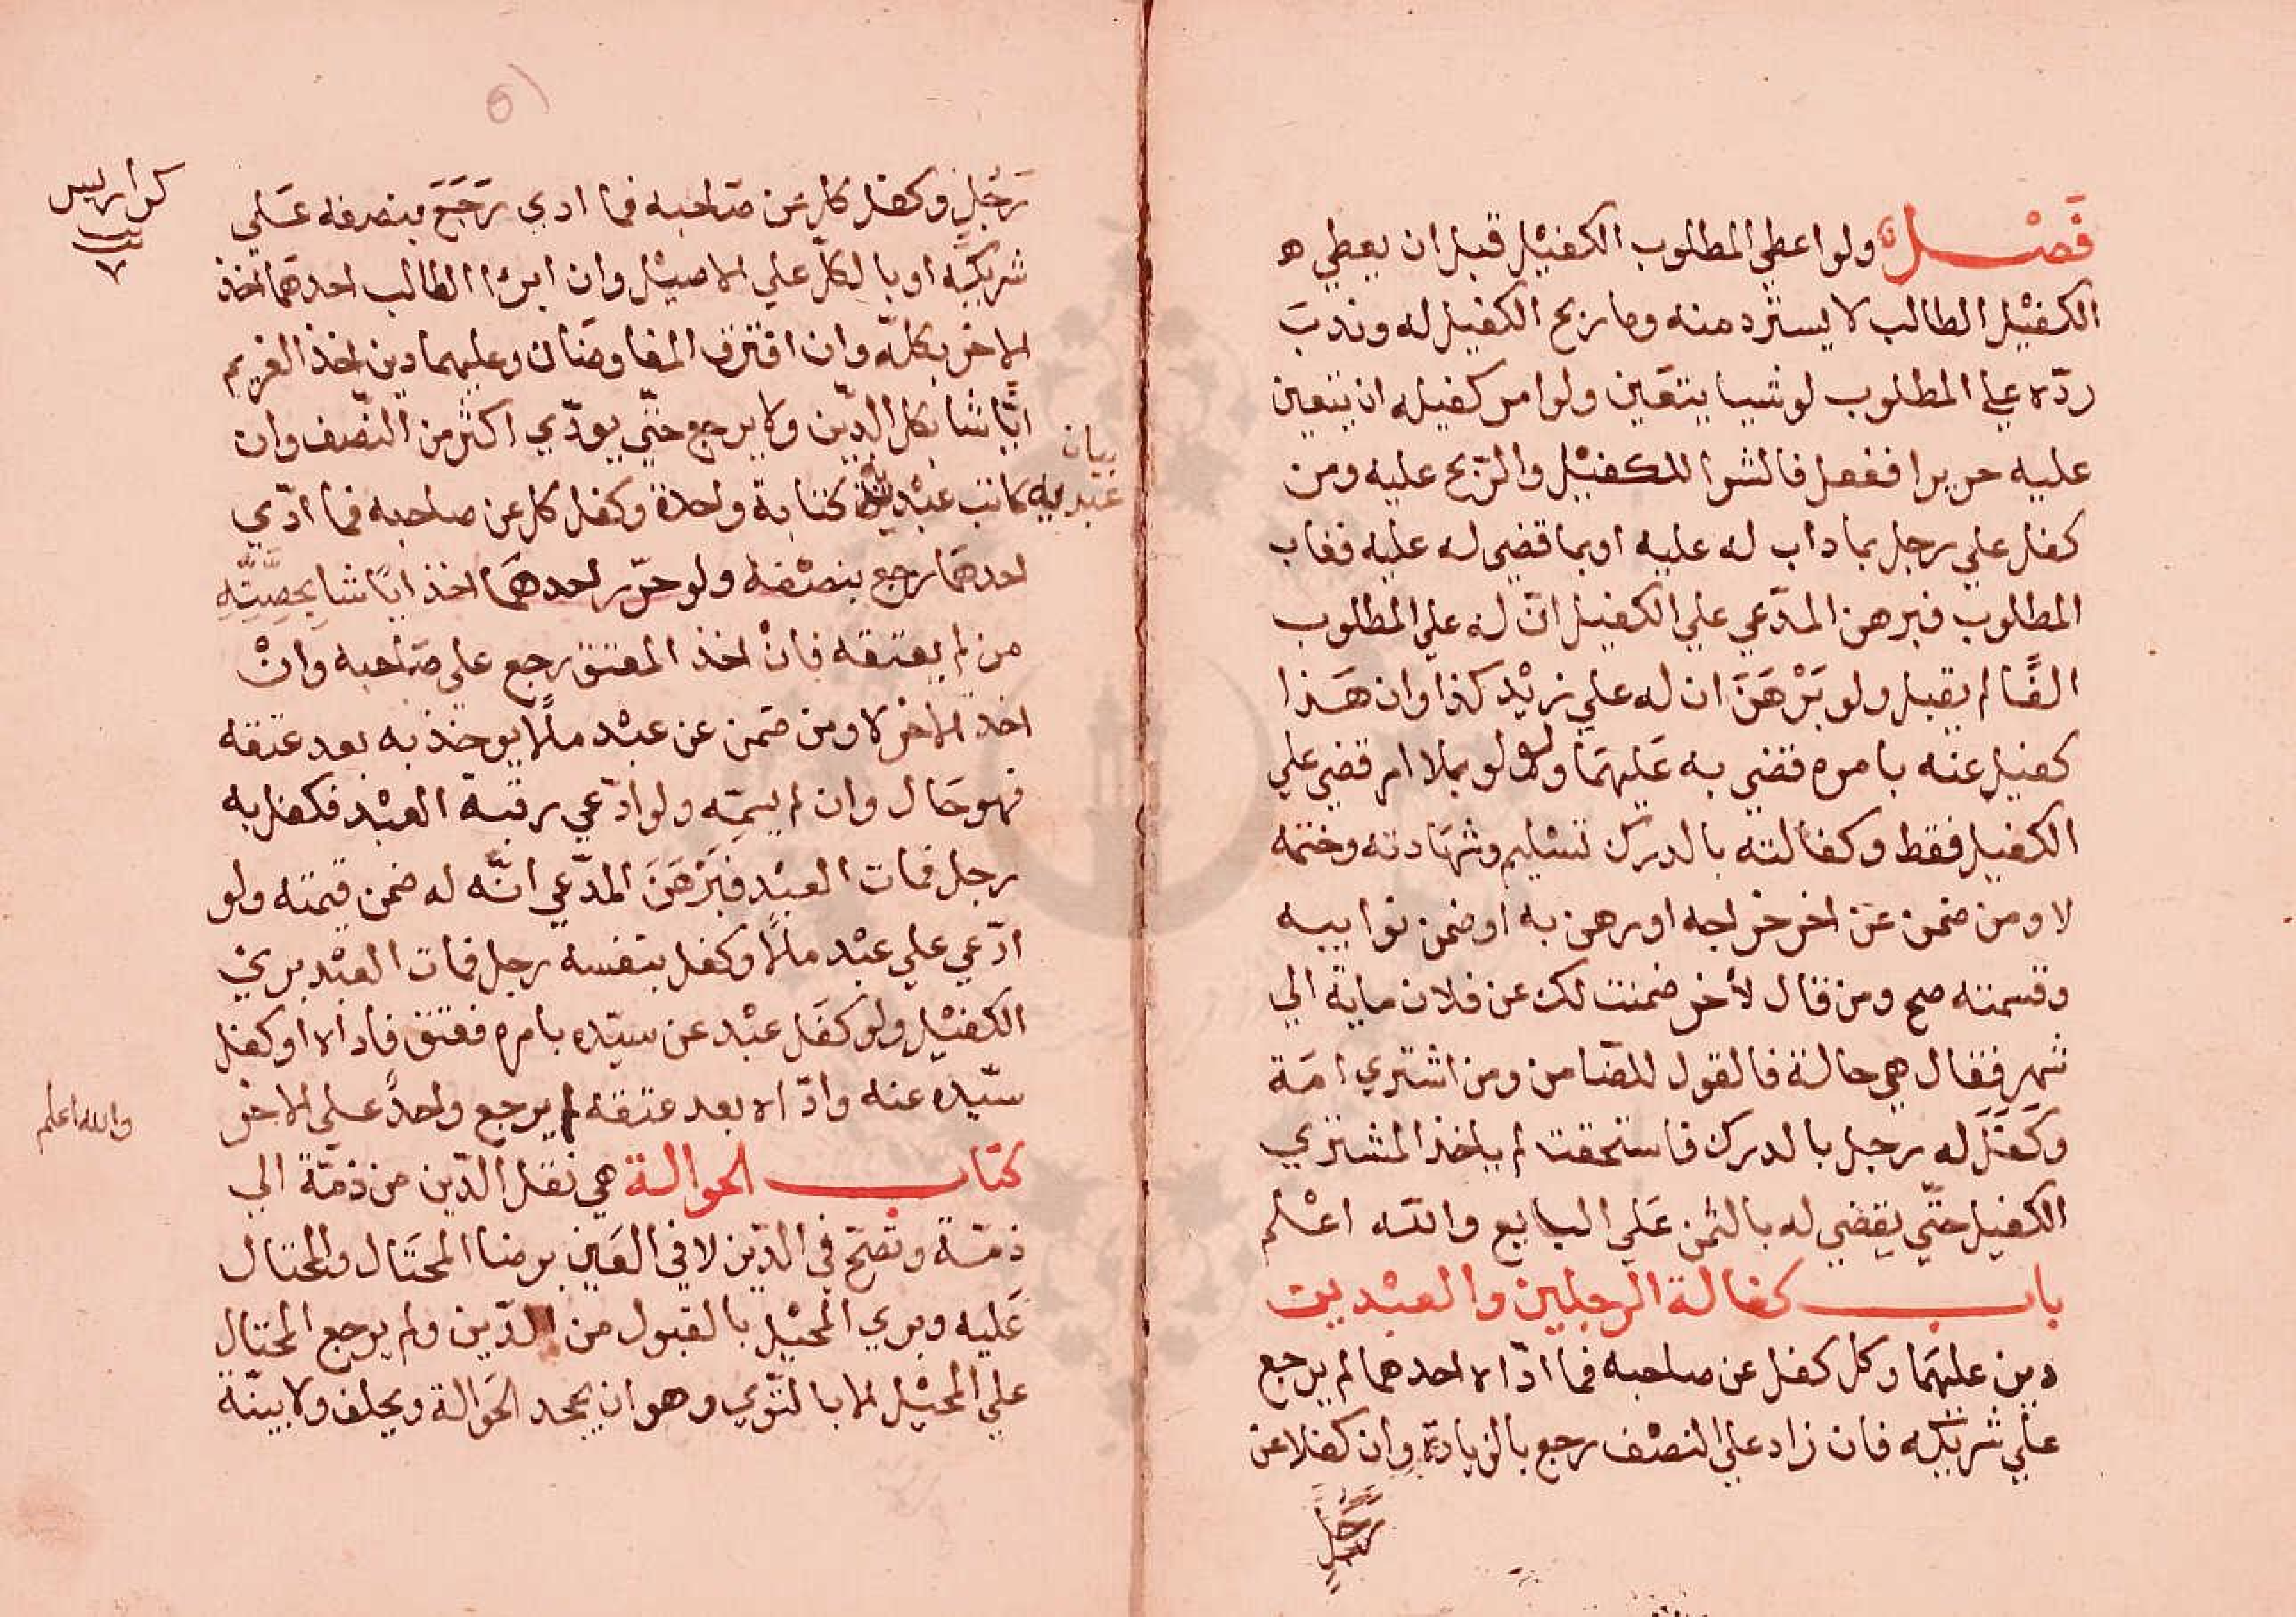 فَصْل ولو اعطي المطلوب الكفيْل قبل ان يعطي ه
الكفيْل الطالب لا يسترد منه وما ربح الكفيل له وندبَ
ردّه علي المطلوب لو شيا يتعَين ولو امر كفيله ان يتعين
عليه حريرا ففعل فالشرا للكفيْل والرّبح عليه ومن
كفل علي رجل بما داب له عليه او بما قضي له عليه فغاب
المطلوب فبرهن المدّعي علي الكفيل انّ له علي المطلوب
الفًا لم يقبل ولو بَرْهَنَ ان له علي زيْد كذا وان هَذا
كفيل عنه بامره قضي به عَليهمَا ولو بلا امر قضي علي
الكفيل فقط وكفالته بالدرك تسْليم وشهَادته وختمه
لا ومن ضمن عَن اخر خراجه او رهن به او ضمن نوايبه
وقسمته صح ومن قال لأخر ضمنت لك عن فلان ماية الي
شهر فقال هي حالة فالقول للضامن ومن اشتري امَة
وكَفَلَ له رجل بالدرك فاستحقت لم ياخذ المشتري
الكفيل حتّي يقضي له بالثمن عَلي البايع والله اعْلم
باب كفالة الرجلين والعبْدين
دين عليهمَا وكل كفل عن صاحبه فما ادّاه احدهما لم يرجع
علي شريكه فان زاد علي النصْف رجع بالزيادة وان كفلا عن
رَجُلٍ
رَجُلٍ وكفل كل عَن صَاحبه فما ادي رَجَعَ بنصفه عَلي
شريكه او بالكلّ علي الاصيْل وان ابرا الطالب احدهمَا اخذ
الاخر بكلّه وان افترق المفاوضَان وعليهما دين اخذ الغريم
ايّاً شا بكل الدّين ولا يرجع حتّي يودّي اكثر من النّصف وان
كاتب عبْديه كتابة واحدة وكفل كل عن صاحبه فما ادّي
احدهمَا رجع بنصْفه ولو حرّر احدهمَا اخذ ايّاً شا بحِصّتِهِ
من لم يعتقه فانْ اخذ المعتق رجع علي صَاحبه وانْ
اخذ الاخر لا ومن ضَمن عن عبْد مالًا يوخذ به بعد عتقه
فهو حَال وان لم يسمّه ولو ادّعي رقبة العبْد فكفل به
رجل فمات العبْد فبَرْهَنَ المدّعي انّه له ضمن قيمته ولو
ادّعي علي عبْد مالًا وكفل بنفسه رجل فمات العبْد بريْ
الكفيْل ولو كفَل عبْد عن سيّده بامره فعتق فاداه او كفل
سيّده عنه وادّاه بعد عتقه لم يرجع واحدٌ علي الاخر
كتاب الحوالة هي نقل الدّين من ذمّة الي
ذمّة وتصحّ في الدّين لا في العَين برضا المحتَال والمحتال
عَليه وبري المحيْل بالقبول من الدّين ولم يرجع المحتال
علي المحيْل الا بالتّوي وهو ان يجحد الحَوالة ويحلف ولا بيّنة
بيان
عبديه
كراريس
٧
والله اعلم